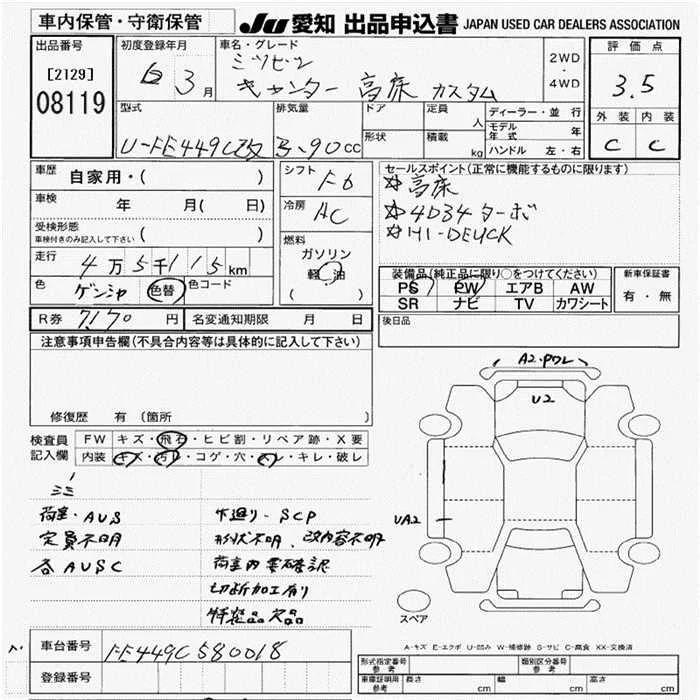 車内保管・守衛保管 JU 愛知 出品申込書 JAPAN USED CAR DEALERS ASSOCIATION
出品番号
[2129]
08119
初度登録年月
6 3月
車名・グレード
ミツビシ
キャンター 高床 カスタム
2WD
・
4WD
評価点
3.5
外装 内装
C C
型式
U-FE449C改
排気量
3.90cc
ドア
形状
定員 人
積載 kg
ディーラー・並行
モデル年式 年
ハンドル 左・右
車歴
自家用・( )
車検 年 月( 日)
受検形態
車検付きのみ記入して下さい ( )
走行
4万5千115km
色 ゲンシャ 色替 色コード
シフト F6
冷房 AC
燃料
ガソリン
軽油
( )
セールスポイント(正常に機能するものに限ります)
☆高床
☆4D34ターボ
☆HI-DECK
装備品(純正品に限り○をつけてください)
PS PW エアB AW
SR ナビ TV カワシート
新車保証書
有・無
R券 7170円 名変通知期限 月 日
後日品
注意事項申告欄(不具合内容等は具体的に記入して下さい)
修復歴 有(箇所
検査員記入欄
FW キズ・飛石・ヒビ割・リペア跡・X要
内装 キズ・汚レ・コゲ・穴・スレ・キレ・破レ
荷室・AUS
定員不明
各AUSC
下廻り-SCP
形状不明、改内容不明
荷室内要確認
切断加工有り
特装品欠品
A2・Pワレ
U2
UA2
スペア
A-キズ E-エクボ U-凹み W-補修跡 S-サビ C-腐食 XX-交換済
車台番号 FE449C580018
登録番号
型式指定番号 参考
類別区分番号 参考
車庫証明用 参考
長さ cm 幅 cm 高さ cm